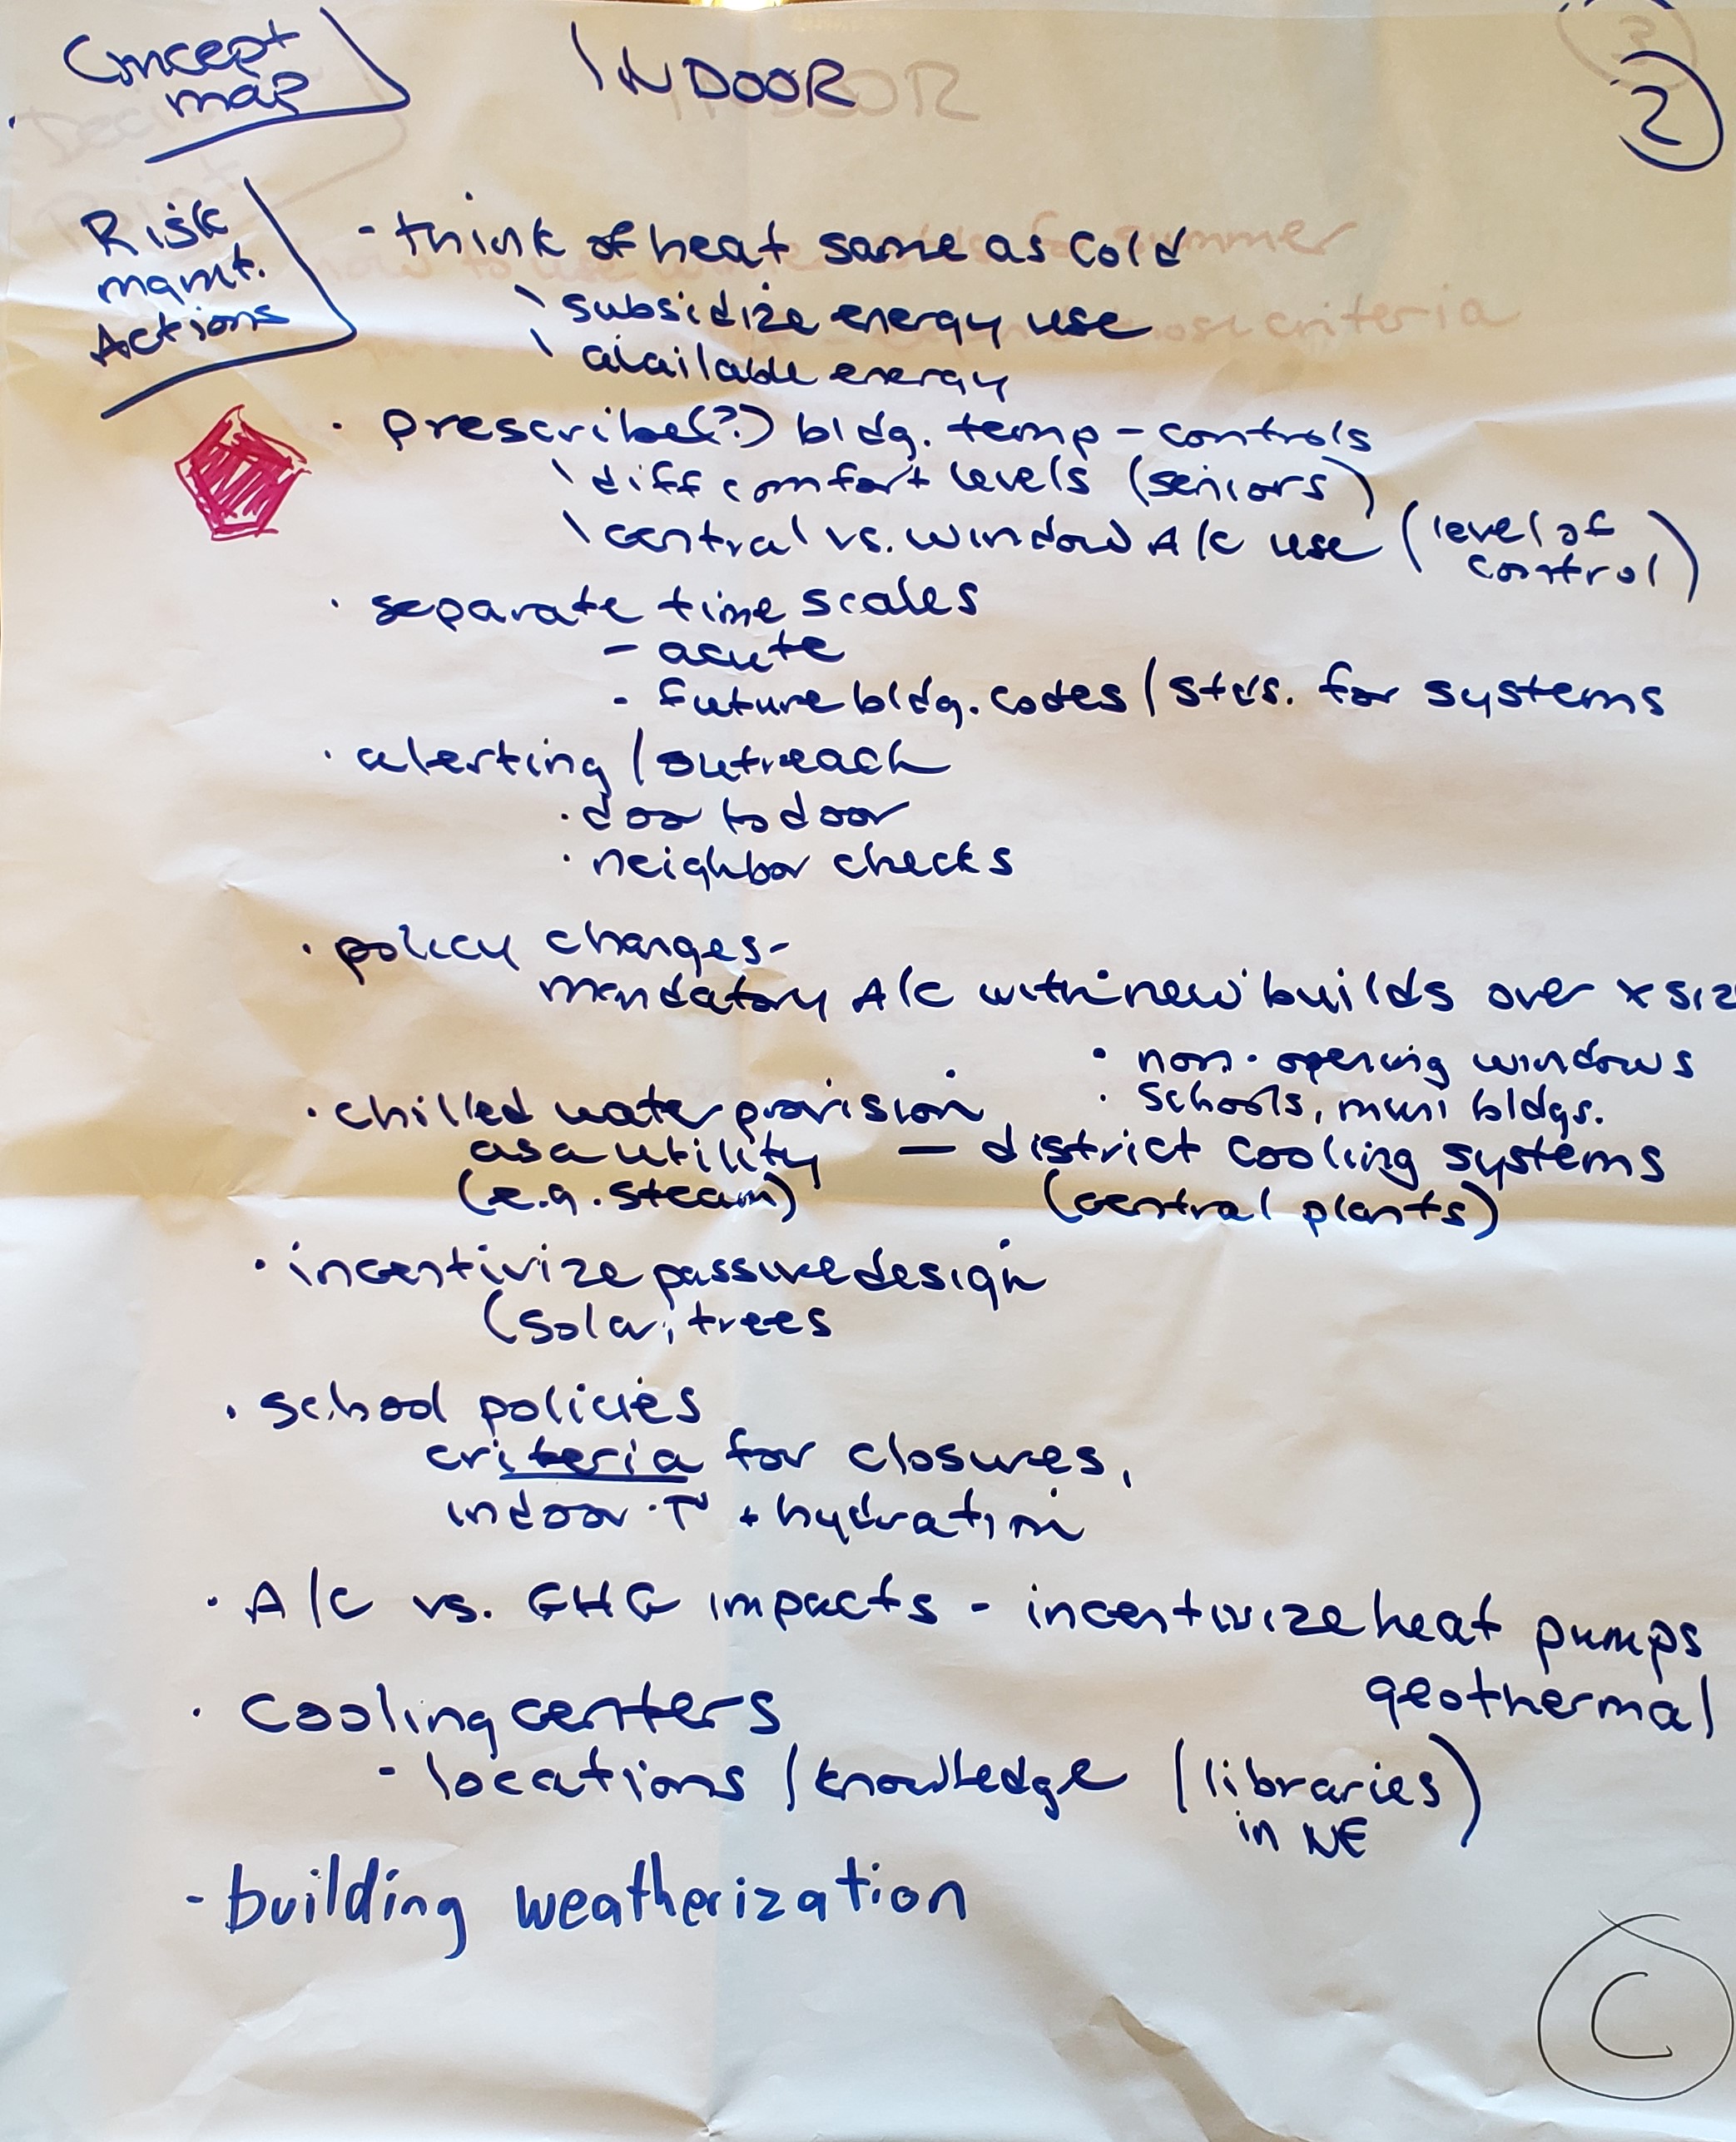 Concept map
INDOOR
2
Risk mgmt. Actions
- think of heat same as cold
\ subsidize energy use
\ available energy
· prescribe(?) bldg. temp - controls
\ diff comfort levels (seniors)
\ central vs. window A/C use (level of control)
· separate time scales
- acute
- future bldg. codes / stds. for systems
· alerting / outreach
· door to door
· neighbor checks
· policy changes -
mandatory A/C with "new" builds over x siz
· non-opening windows
· schools, muni bldgs.
· chilled water provision
as a utility — district cooling systems
(e.g. steam) (central plants)
· incentivize passive design
(solar, trees
· school policies
criteria for closures,
indoor T + hydration
· A/C vs. GHG impacts - incentivize heat pumps
geothermal
· Cooling centers
- locations / knowledge (libraries in NE)
- building weatherization
C